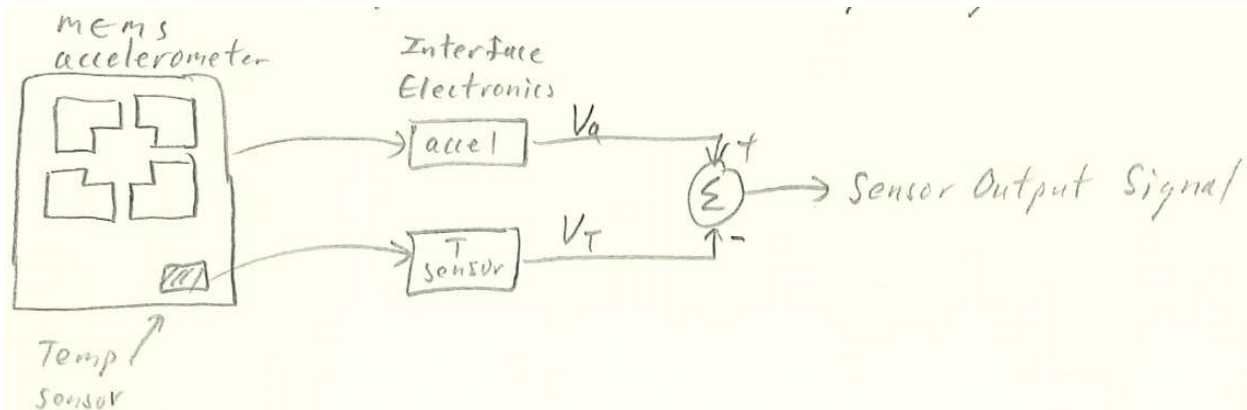 MEMS
accelerometer
Interface
Electronics
accel
Va
+
Σ
Sensor Output Signal
T
sensor
VT
-
Temp
sensor